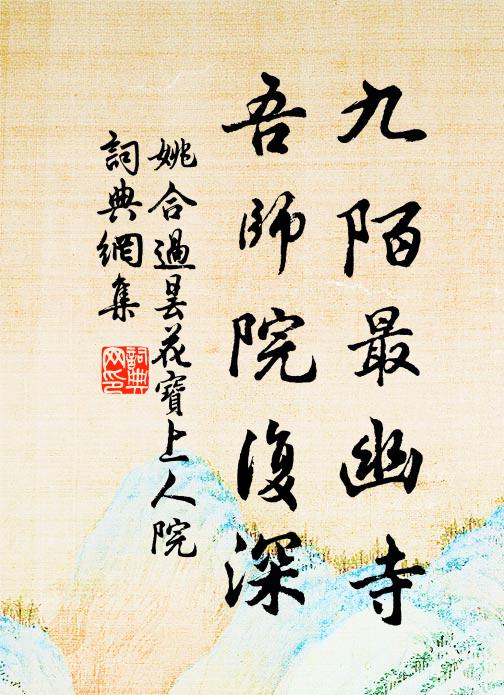 九陌最幽寺
吾師院復深
姚合過曇花寶上人院
詞典網集
詞典網印